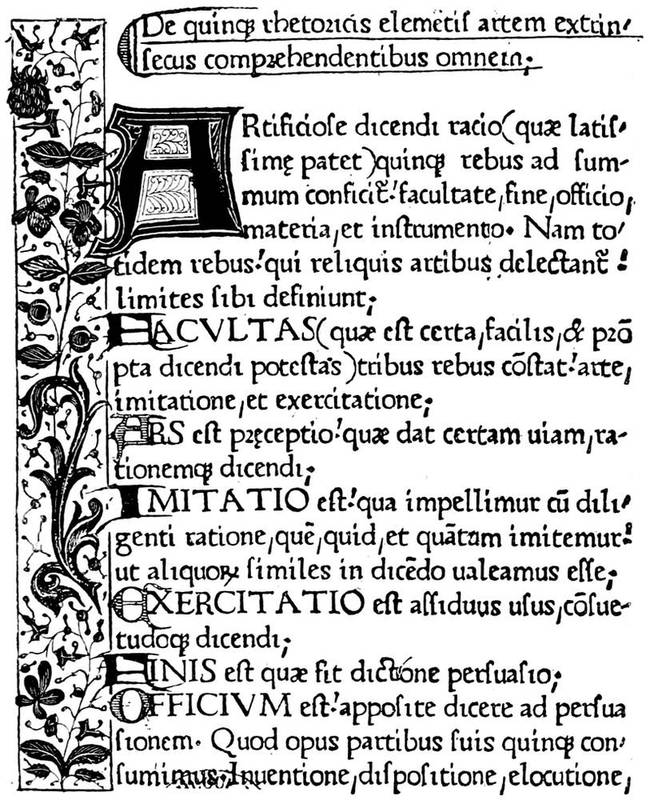 De quinqꝫ rhetoricis elemētis artem extrin⸗
ſecus compꝛehendentibus omnem;
ARtificioſe dicendi racio(quæ latiſ⸗
ſimę patet)quinqꝫ rebus ad ſum⸗
mum conficit̄:facultate,fine,officio,
materia,et inſtrumento. Nam to⸗
tidem rebus:qui reliquis artibus delectant̄:
limites ſibi definiunt;
FACVLTAS(quæ eſt certa,facilis,& pꝛō
pta dicendi poteſtas)tribus rebus cōſtat:arte,
imitatione,et exercitatione;
ARS eſt pꝛęceptio:quæ dat certam uiam,ra⸗
tionemqꝫ dicendi;
IMITATIO eſt:qua impellimur cū dili⸗
genti ratione,quē,quid,et quātum imitemur:
ut aliquoꝝ ſimiles in dicēdo ualeamus eſſe;
EXERCITATIO eſt aſſiduus uſus,cōſue⸗
tudoqꝫ dicendi;
FINIS eſt quæ fit dictione perſuaſio;
OFFICIVM eſt:appoſite dicere ad perſua
ſionem. Quod opus partibus ſuis quinqꝫ con⸗
ſumimus:Inuentione,diſpoſitione,elocutione,